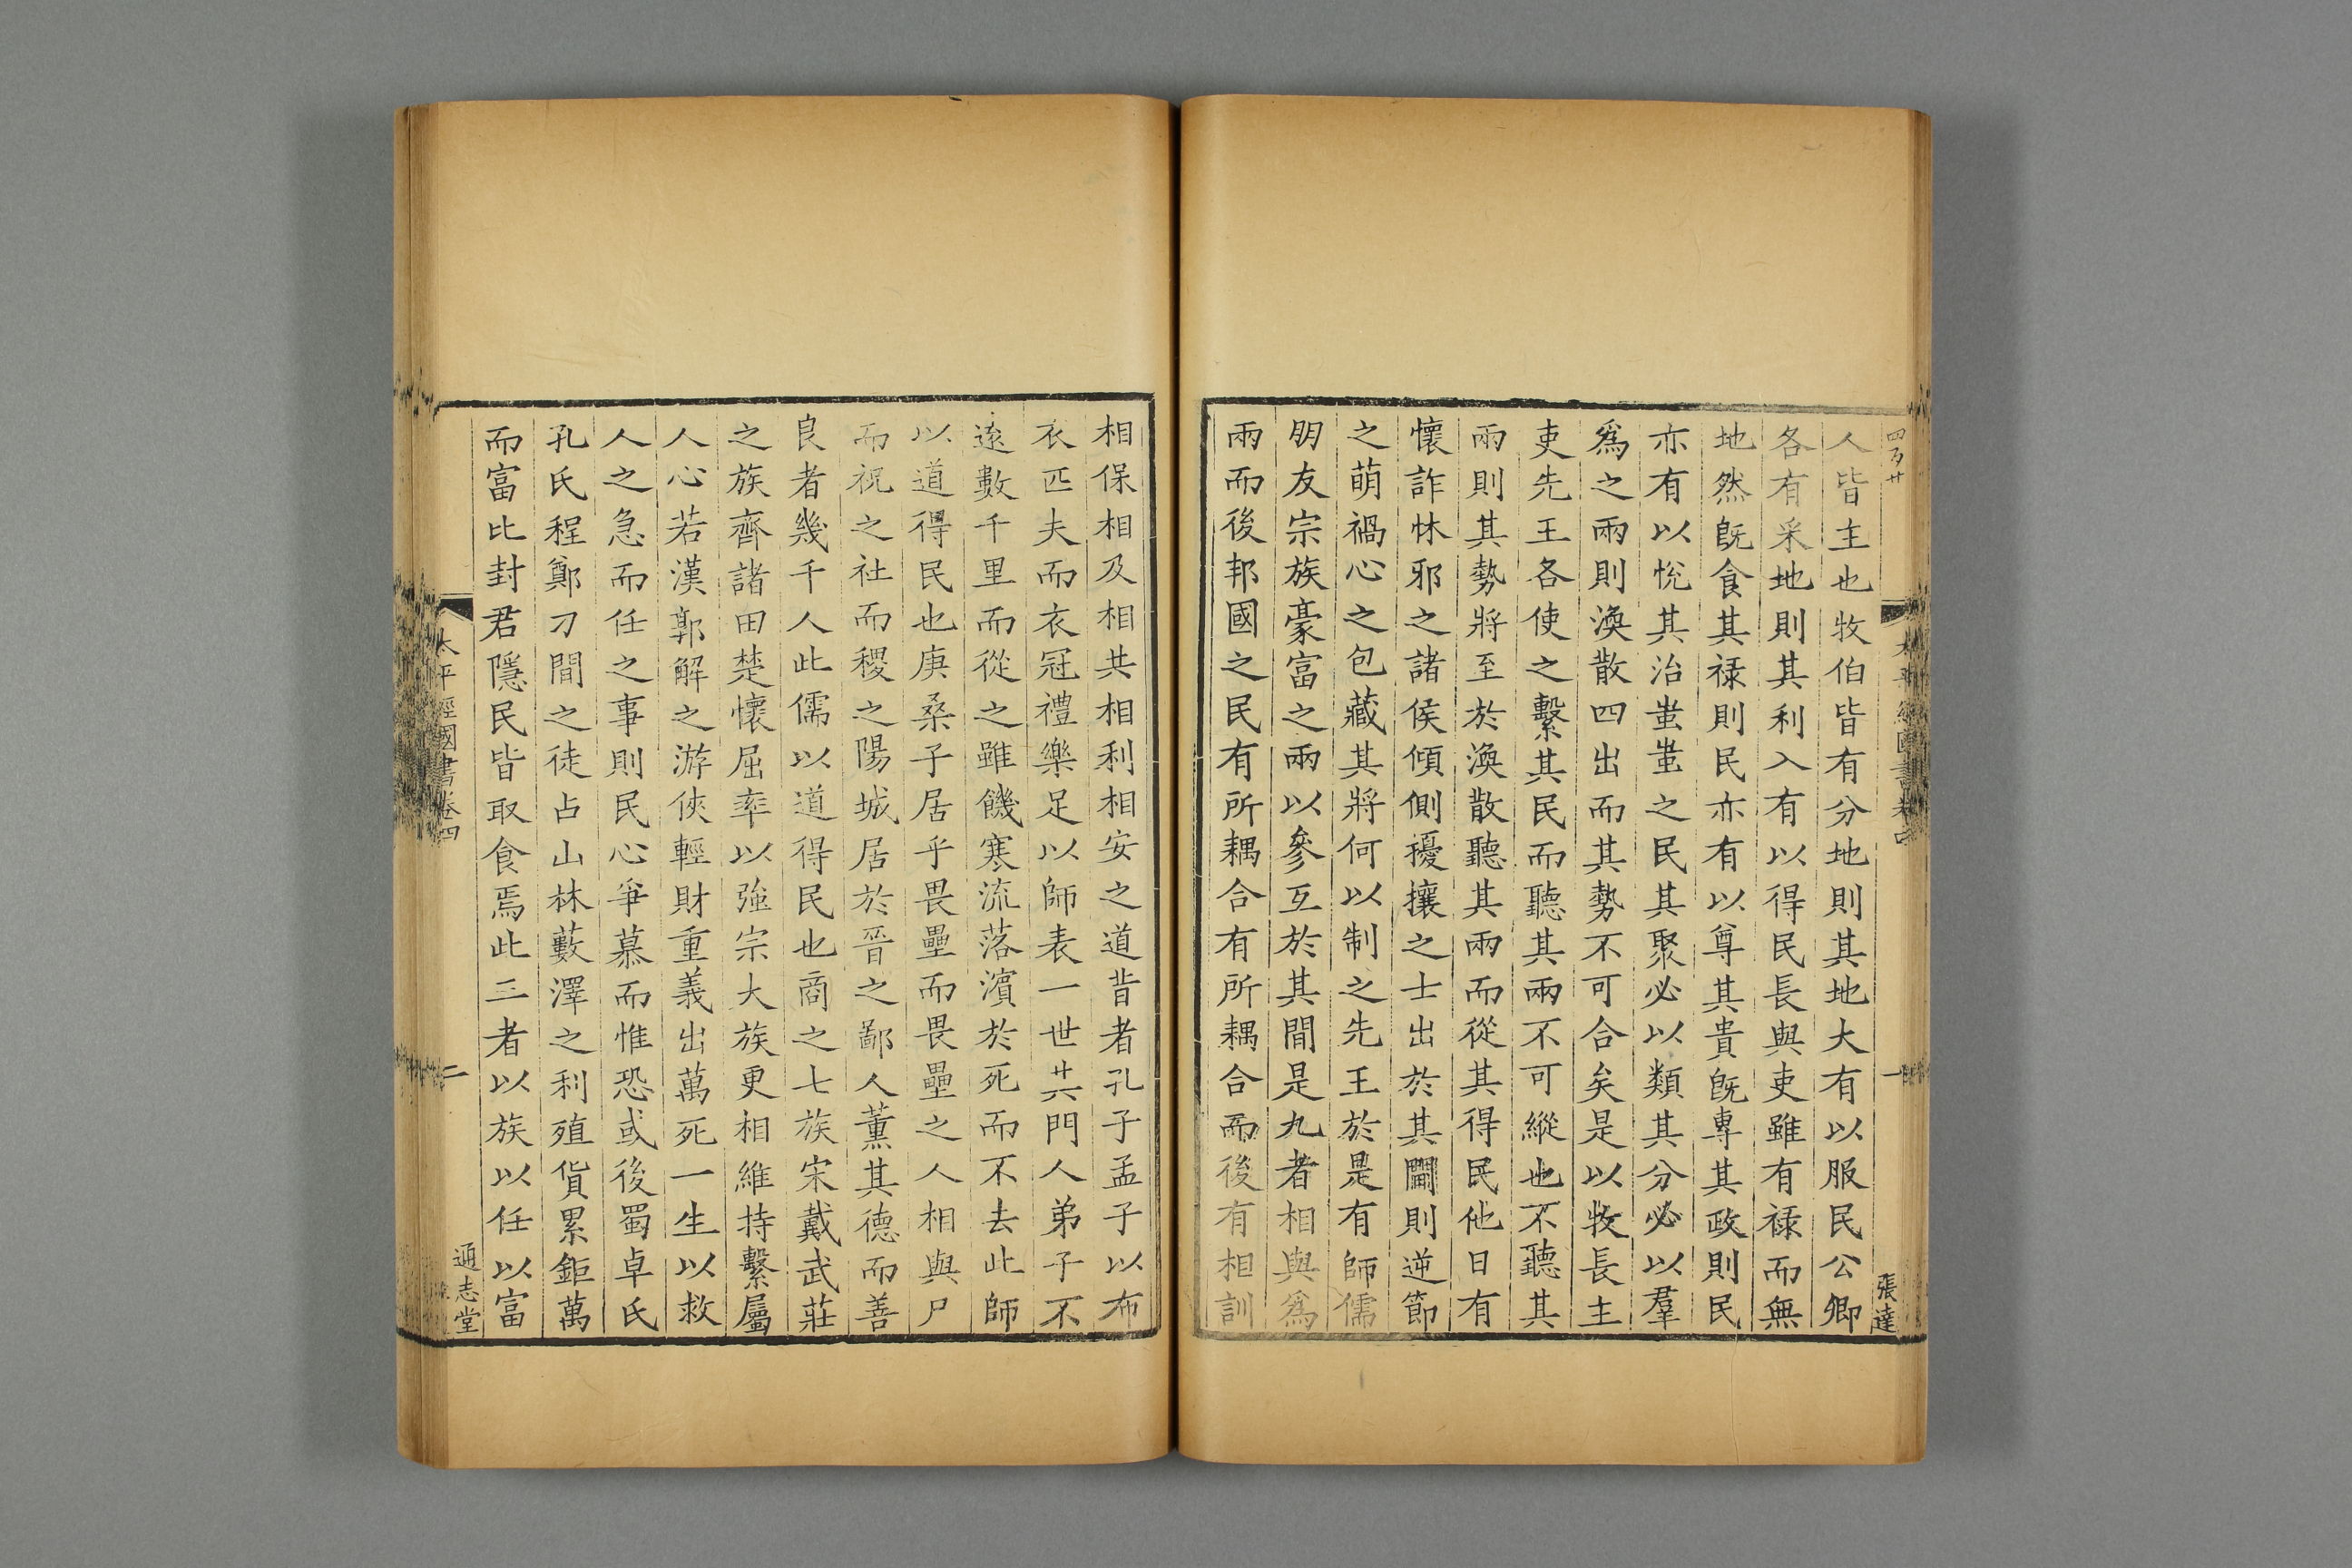 四百廿
太平經國書卷四
一
張達
人皆主也牧伯皆有分地則其地大有以服民公卿
各有采地則其利入有以得民長與吏雖有祿而無
地然旣食其祿則民亦有以尊其貴旣專其政則民
亦有以悅其治蚩蚩之民其聚必以類其分必以羣
爲之兩則渙散四出而其勢不可合矣是以牧長主
吏先王各使之繫其民而聽其兩不可縱也不聽其
兩則其勢將至於渙散聽其兩而從其得民他日有
懷詐怵邪之諸侯傾側擾攘之士出於其閒則逆節
之萌禍心之包藏其將何以制之先王於是有師儒
朋友宗族豪富之兩以參互於其間是九者相與爲
兩而後邦國之民有所耦合有所耦合而後有相訓
相保相及相共相利相安之道昔者孔子孟子以布
衣匹夫而衣冠禮樂足以師表一世其門人弟子不
遠數千里而從之雖饑寒流落濱於死而不去此師
以道得民也庚桑子居乎畏壘而畏壘之人相與尸
而祝之社而稷之陽城居於晉之鄙人薰其德而善
良者幾千人此儒以道得民也商之七族宋戴武莊
之族齊諸田楚懷屈率以強宗大族更相維持繫屬
人心若漢郭解之游俠輕財重義出萬死一生以救
人之急而任之事則民心爭慕而惟恐或後蜀卓氏
孔氏程鄭刁間之徒占山林藪澤之利殖貨累鉅萬
而富比封君隱民皆取食焉此三者以族以任以富
太平經國書卷四
二
通志堂